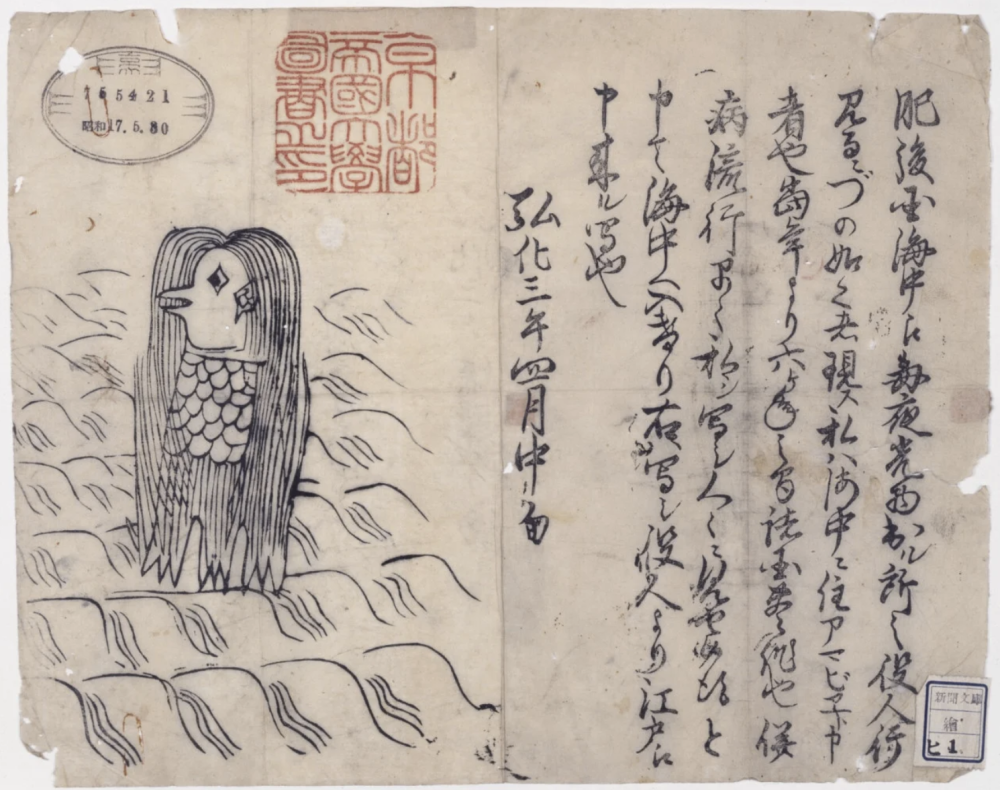 肥後国海中江毎夜光物出ル所之役人行
見るニづの如く之者現ス私ハ海中ニ住アマビヱト申
者也當年より六ヶ年之間諸国豊作也併
病流行早々私シ写シ人々ニ見せ候得と
申て海中へ入けり右写シ役人より江戸江
申来ル写也
弘化三年四月中旬
京都
帝國大學
圖書之印
165421
昭和17.5.30
新聞文庫
繪
ヒ1